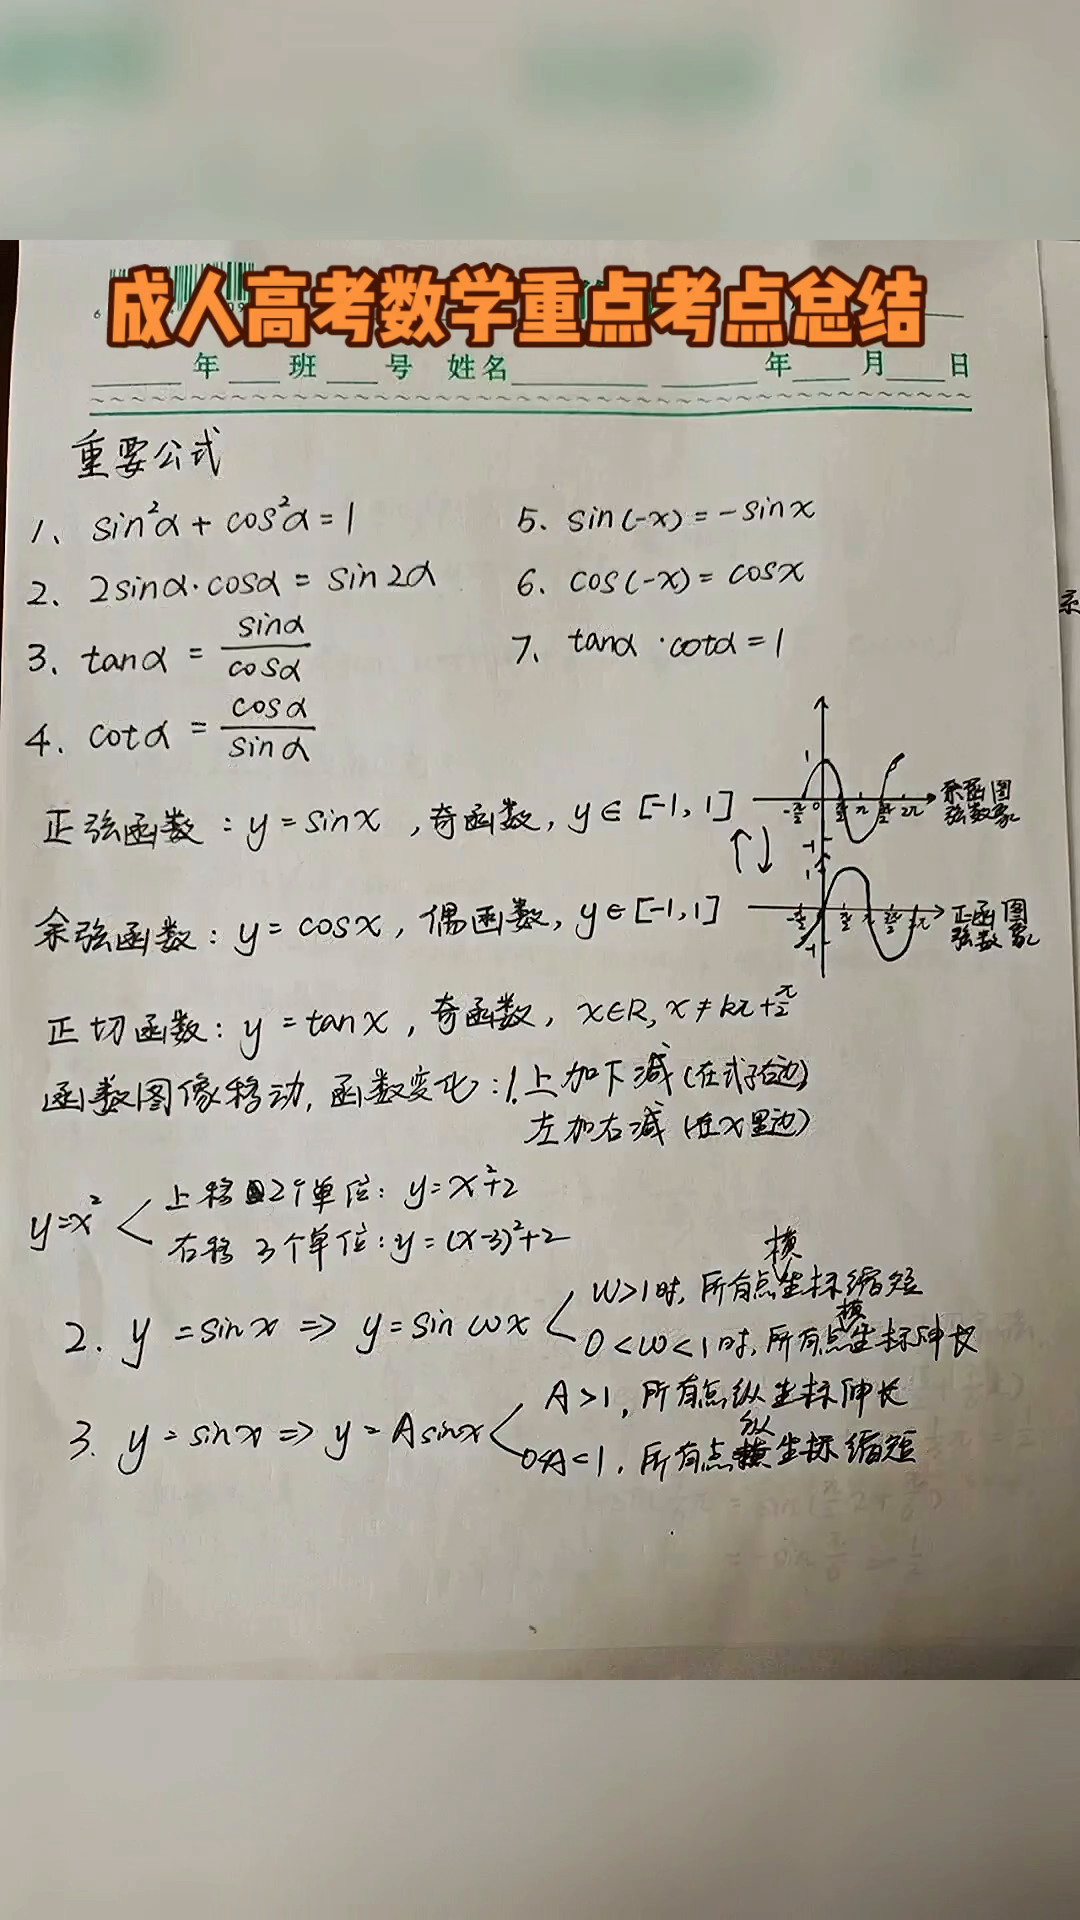 成人高考数学重点考点总结
年 班 号 姓名 年 月 日
重要公式
1、sin²α + cos²α = 1
2、2sinα·cosα = sin2α
3、tanα = sinα/cosα
4、cotα = cosα/sinα
5、sin(-x) = -sinx
6、cos(-x) = cosx
7、tanα·cotα = 1
正弦函数：y = sinx，奇函数，y∈[-1，1]
余弦函数图象
1
-π/2 0 π/2 π 3π/2 2π
-1
余弦函数：y = cosx，偶函数，y∈[-1,1]
正弦函数图象
1
-π/2 π/2 π 3π/2 2π
-1
正切函数：y = tanx，奇函数，x∈R，x≠kπ+π/2
函数图像移动，函数变化：1.上加下减（在式子右边）
左加右减（在x里边）
y=x²
上移2个单位：y=x²+2
右移3个单位：y=(x-3)²+2
2. y = sinx ⇒ y = sin ωx
W>1时，所有点横坐标缩短
0<ω<1时，所有点横坐标伸长
3. y = sinx ⇒ y = Asinx
A>1，所有点纵坐标伸长
0<A<1，所有点纵坐标缩短